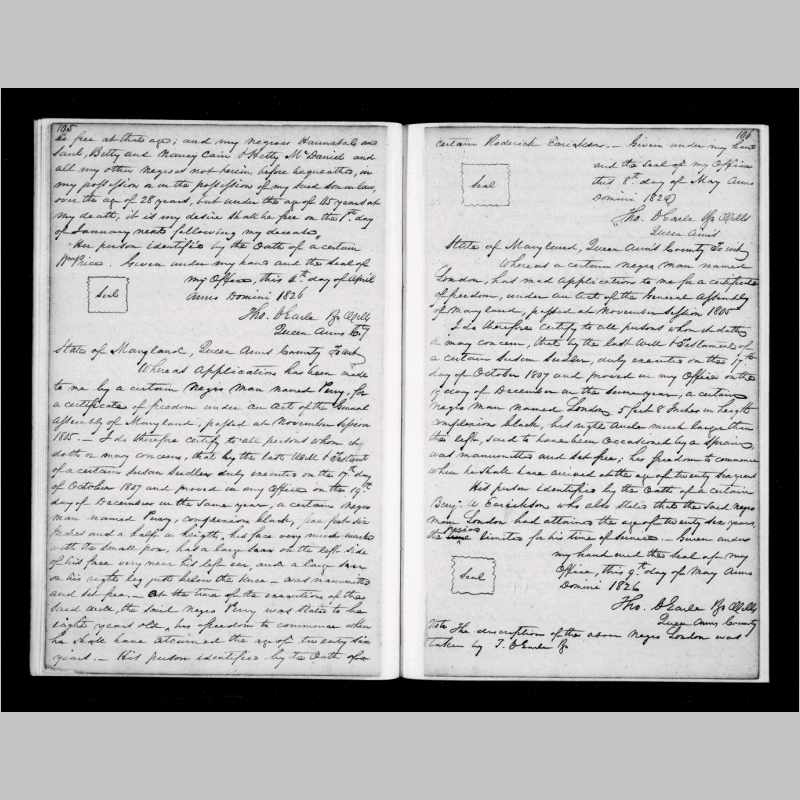 195
be free at that age; and my negroes Hannah and
Saul, Betty and Nancy Cain & Hetty McDaniel and
all my other negroes not herein before bequeathed, in
my possession or in the possession of my said son in law,
over the age of 28 years, but under the age of 45 years at
my death, it is my desire shall be free on the 1st day
of January next following my decease,
Her person identified by the Oath of a certain
Wm Price. Given under my hand and the seal of
Seal
my Office, this 6th day of April
Anno Domini 1826
Tho. C Earle Rg Wills
Queen Anns Cy
State of Maryland, Queen Anns County To wit,
Whereas Application has been made
to me by a certain Negro Man named Perry, for
a certificate of freedom under an Act of the General
Assembly of Maryland, passed at November Session
1805.— I do therefore certify to all persons whom it
doth or may concern, that by the last Will & Testament
of a certain Susan Sudler duly executed on the 17th day
of October 1807 and proved in my Office on the 19th
day of December in the same year, a certain Negro
man named Perry, complexion black, five feet six
Inches and a half in heigth, his face very much marked
with the small pox, has a large scar on the left side
of his face very near his left ear, and a large scar
on his right leg just below the knee — was manumitted
and set free.— At the time of the execution of the
said will, the said Negro Perry was stated to be
eight years old, his freedom to commence when
he shall have attained the age of twenty six
years.— His person identified by the Oath of a
196
certain Roderick Earickson.— Given under my hand
Seal
and the seal of my Office
this 8th day of May Anno
Domini 1826
Tho. C Earle Rg Wills
Queen Anns
State of Maryland, Queen Anns County To wit,
Whereas a certain negro man named
London, has made application to me for a certificate
of freedom, under an act of the General Assembly
of Maryland, passed at November Session 1805
I do therefore certify to all persons whom it doth
or may concern, that by the last Will & Testament of
a certain Susan Sudler, duly executed on the 17th
day of October 1807 and proved in my Office on the
19 day of December in the same year, a certain
Negro man named London, 5 feet 8 Inches in heigth
complexion black, his right ancle much larger than
the left, said to have been occasioned by a Sprain,
was manumitted and set free; his freedom to commence
when he shall have arrived at the age of twenty six years
His person identified by the Oath of a certain
Benj. A Earickson who also states that the said negro
man London had attained the age of twenty six years,
period
the limited for his time of Service.— Given under
Seal
my hand and the seal of my
Office, this 9th day of May Anno
Domini 1826
Tho. C Earle Rg Wills
Queen Anns County
Note The description of the above Negro London was
taken by T. C Earle Rg